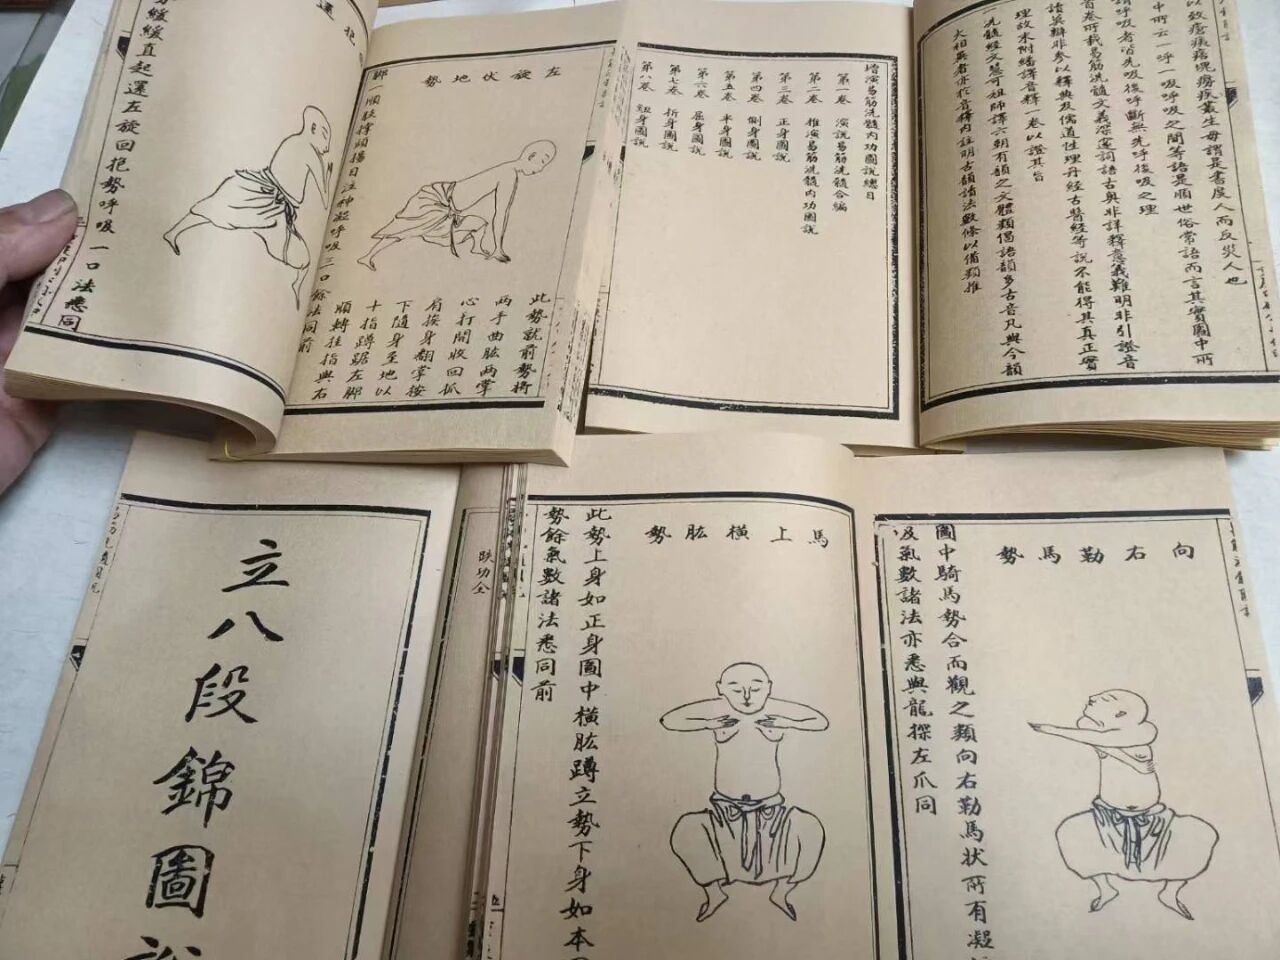 勢緩緩直起運左旋回抱勢呼吸一口法悉同
左旋伏地勢
此勢就前勢將
兩手曲肱兩掌
心打開收回抓
肩按身翻掌按
下隨身至地以
十指蹲踞左腳
順轉拄指與右
腳一順肱撐順揚目注神凝呼吸三口餘法同前
增演易筋洗髓內功圖說總目
第一卷 演說易筋洗髓合編
第二卷 推演易筋洗髓內功圖說
第三卷 正身圖說
第四卷 側身圖說
第五卷 半身圖說
第六卷 屈身圖說
第七卷 折身圖說
第八卷 紐身圖說
以致瘡痍痞塊癆疾叢生毋謂是書度人而反災人也
中所云一呼一吸呼吸之間等語是順世俗常語而言其實圖中所
謂呼吸者皆先吸後呼斷無先呼後吸之理
首卷所載易筋洗髓文義深邃詞語古奧非詳釋意義難明非引證音
諸莫辦非參以釋典及儒道性理丹經古醫經等說不能得其真正實
理故末附繙譯音釋一卷以證其旨
洗髓經文慧可祖師譯六朝有韻之文體類偈語韻多古音凡與今韻
大相異者亦於音釋內註明古韻諸法數條以備類推
立八段錦圖說
跌功全
馬上橫肱勢
此勢上身如正身圖中橫肱蹲立勢下身如本
勢餘氣數諸法悉同前
向右勒馬勢
圖中騎馬勢合而觀之類向右勒馬狀所有凝
吸氣數諸法亦悉與龍探左爪同